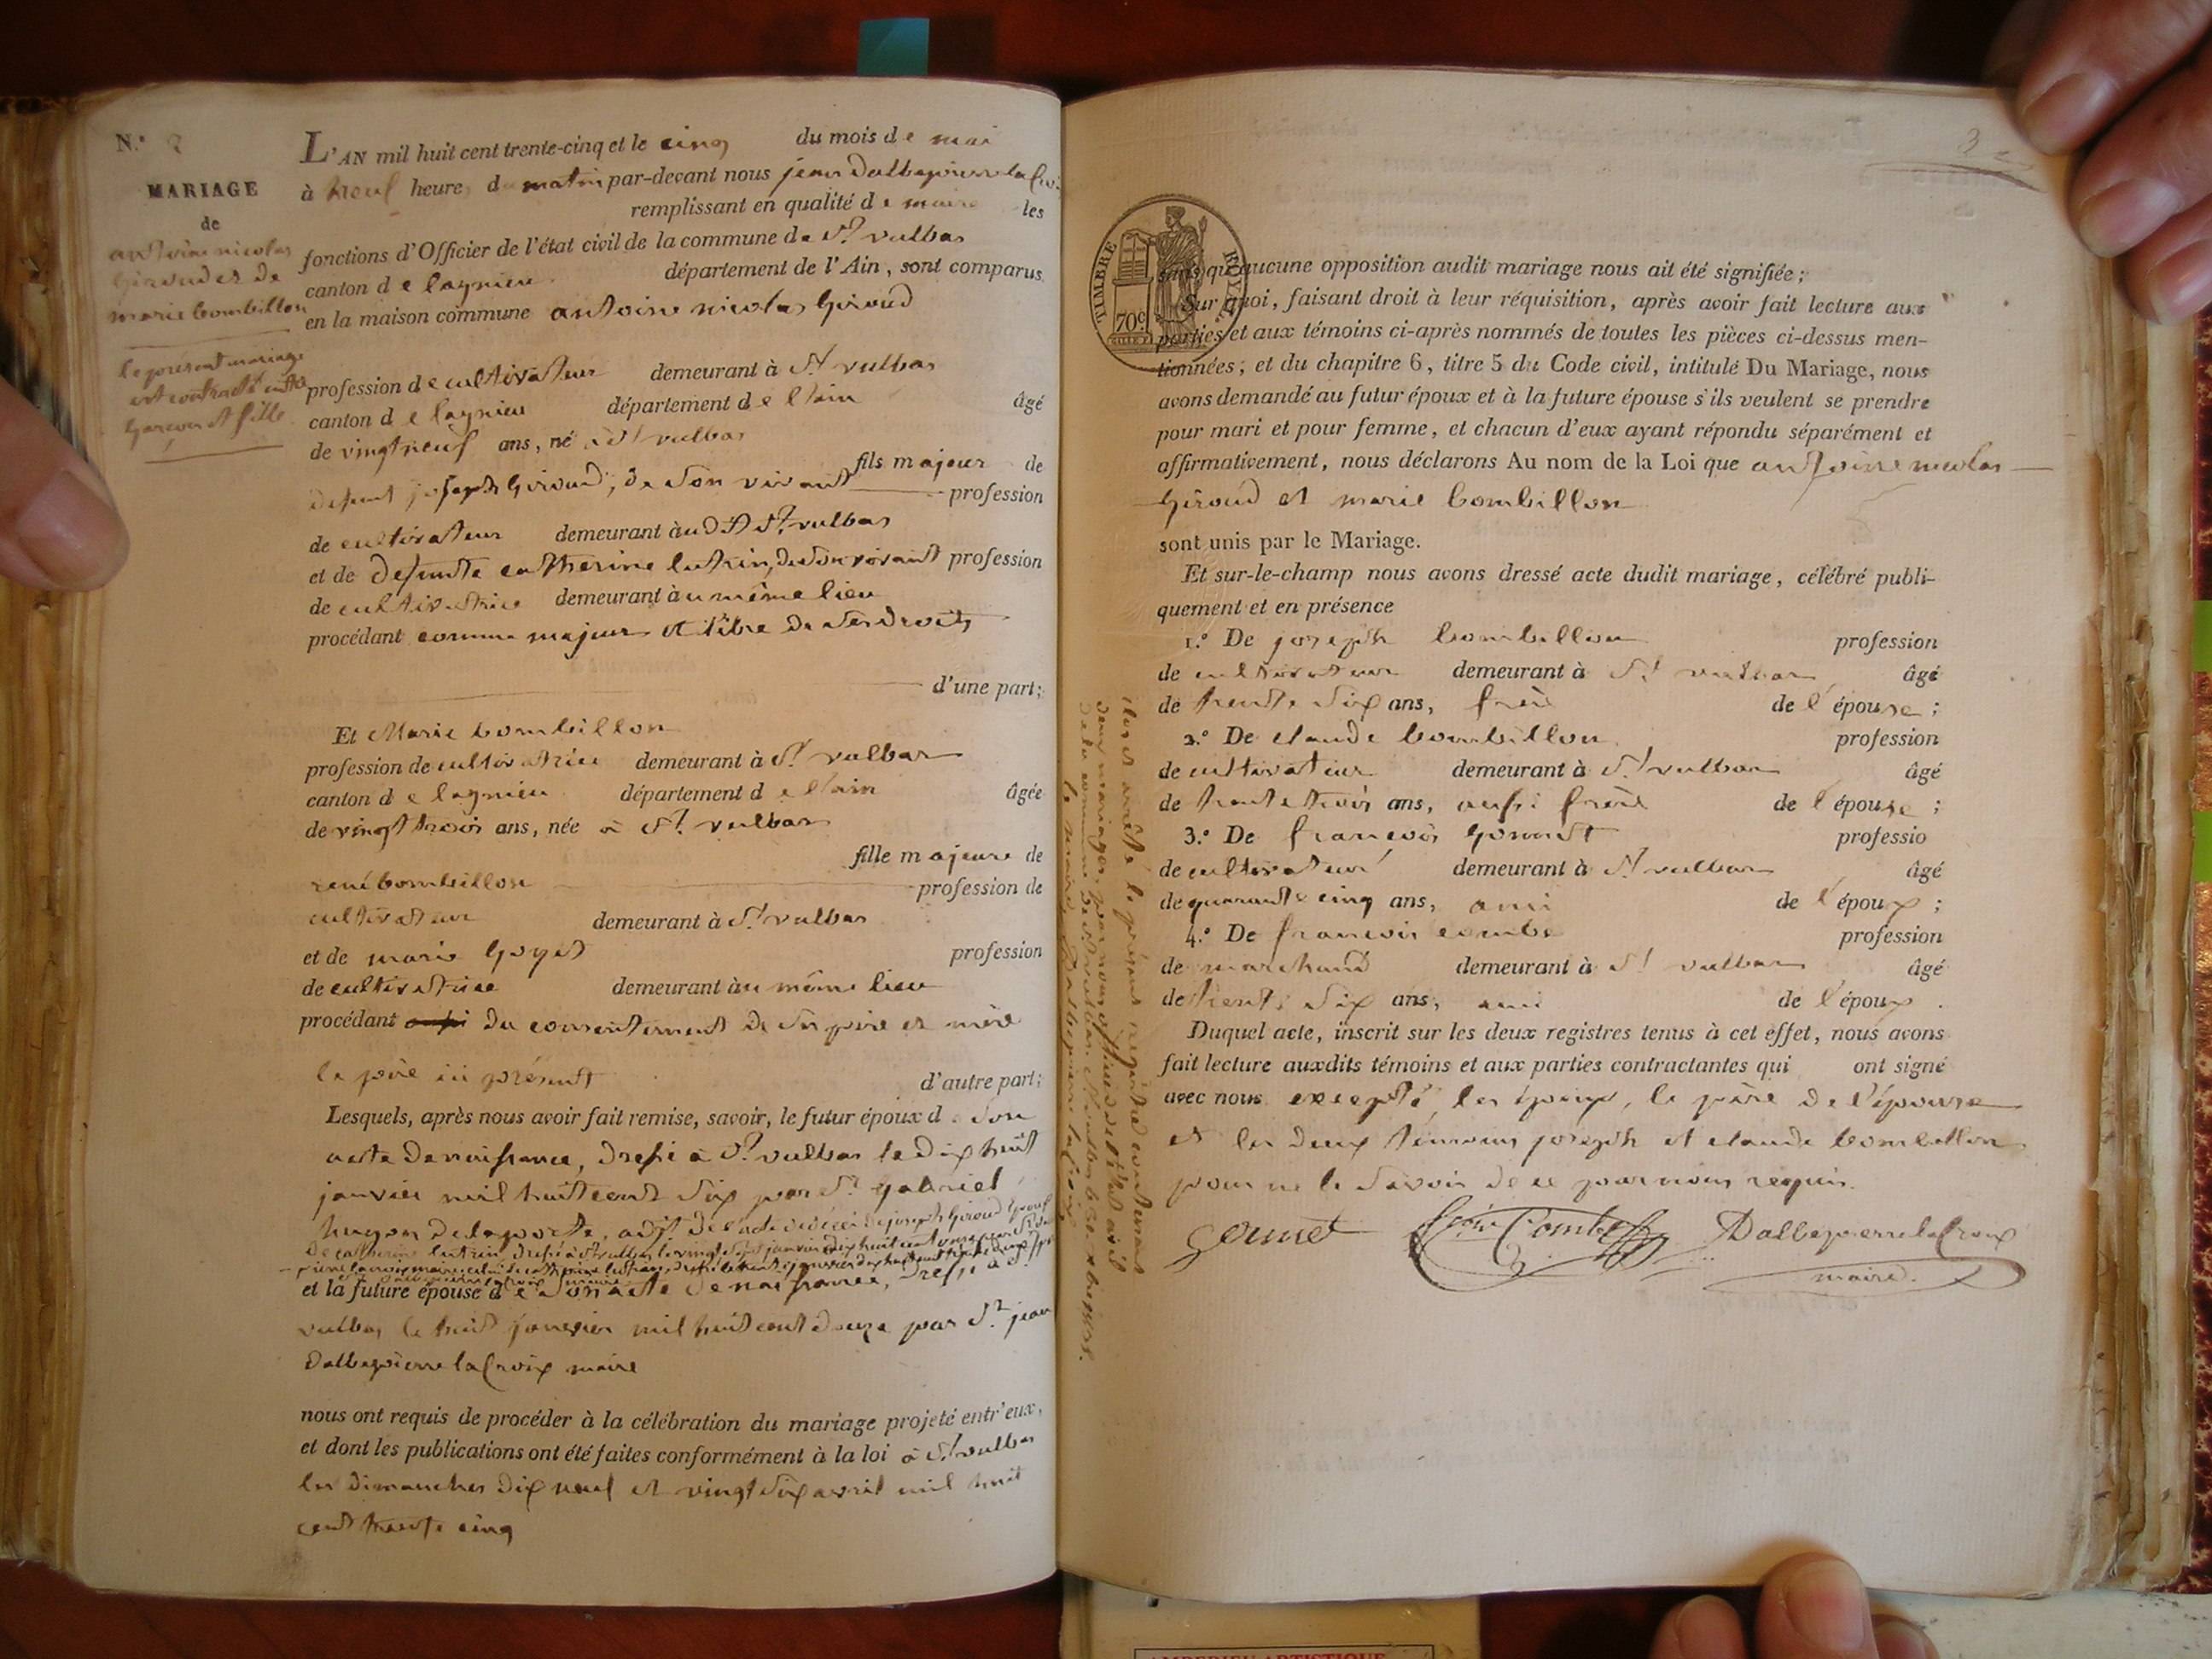 N.° 2
MARIAGE
de
antoine nicolas
Giroud et de
marie bombillon
le present mariage
est contracté entre
garçon et fille
L'AN mil huit cent trente-cinq et le cinq du mois de mai
à neuf heures du matin par-devant nous jean Dallegierre la Croix
remplissant en qualité de maire les
fonctions d'Officier de l'état civil de la commune de St vulbas
canton de lagnieu département de l'Ain, sont comparus
en la maison commune antoine nicolas Giroud
profession de cultivateur demeurant à St vulbas
canton de lagnieu département de l'ain âgé
de vingt neuf ans, né à St vulbas
fils majeur de
defunt joseph Giroud, de son vivant profession
de cultivateur demeurant au dit St vulbas
et de defunte catherine lutrin, de son vivant profession
de cultivatrice demeurant au même lieu
procédant comme majeur et libre de ses droits
d'une part;
Et Marie bombillon
profession de cultivatrice demeurant à St vulbas
canton de lagnieu département de l'ain âgée
de vingt trois ans, née à St vulbas
fille majeure de
rené bombillon profession de
cultivateur demeurant à St vulbas
et de marie Goyet profession
de cultivatrice demeurant au même lieu
procédant du consentement de ses père et mère
le père ici présent d'autre part;
Lesquels, après nous avoir fait remise, savoir, le futur époux de son
acte de naissance, dressé à St vulbas le dix huit
janvier mil huit cent six par Sr gabriel
hugon delaporte, adjt de l'acte de décès de joseph Giroud
et la future épouse de son acte de naissance, dressé à St
vulbas le huit janvier mil huit cent douze par Sr jean
Dallegierre la Croix maire
nous ont requis de procéder à la célébration du mariage projeté entr'eux,
et dont les publications ont été faites conformément à la loi à St vulbas
les dimanches dix neuf et vingt six avril mil huit
cent trente cinq
3
TIMBRE ROYAL
70c
sans qu'aucune opposition audit mariage nous ait été signifiée;
Sur quoi, faisant droit à leur réquisition, après avoir fait lecture aux
parties et aux témoins ci-après nommés de toutes les pièces ci-dessus men-
tionnées; et du chapitre 6, titre 5 du Code civil, intitulé Du Mariage, nous
avons demandé au futur époux et à la future épouse s'ils veulent se prendre
pour mari et pour femme, et chacun d'eux ayant répondu séparément et
affirmativement, nous déclarons Au nom de la Loi que antoine nicolas
Giroud et marie bombillon
sont unis par le Mariage.
Et sur-le-champ nous avons dressé acte dudit mariage, célébré publi-
quement et en présence
1.° De joseph bombillon profession
de cultivateur demeurant à St vulbas âgé
de trente six ans, frère de l'épouse;
2.° De claude bombillon profession
de cultivateur demeurant à St vulbas âgé
de trente trois ans, aussi frère de l'épouse;
3.° De françois profession
de cultivateur demeurant à St vulbas âgé
de quarante cinq ans, ami de l'époux;
4.° De françois combe profession
de marchand demeurant à St vulbas âgé
de trente six ans, ami de l'époux.
Duquel acte, inscrit sur les deux registres tenus à cet effet, nous avons
fait lecture auxdits témoins et aux parties contractantes qui ont signé
avec nous excepté, les époux, le père de l'épouse
et les deux temoins joseph et claude bombillon
pour ne le savoir de ce par nous requis.
Combe Dallegierre la Croix
maire.
clos et arrêté le présent registre contenant
deux mariages, par nous officier de l'état civil
le maire Dallegierre la Croix
AMBERIEU ARTISTIQUE